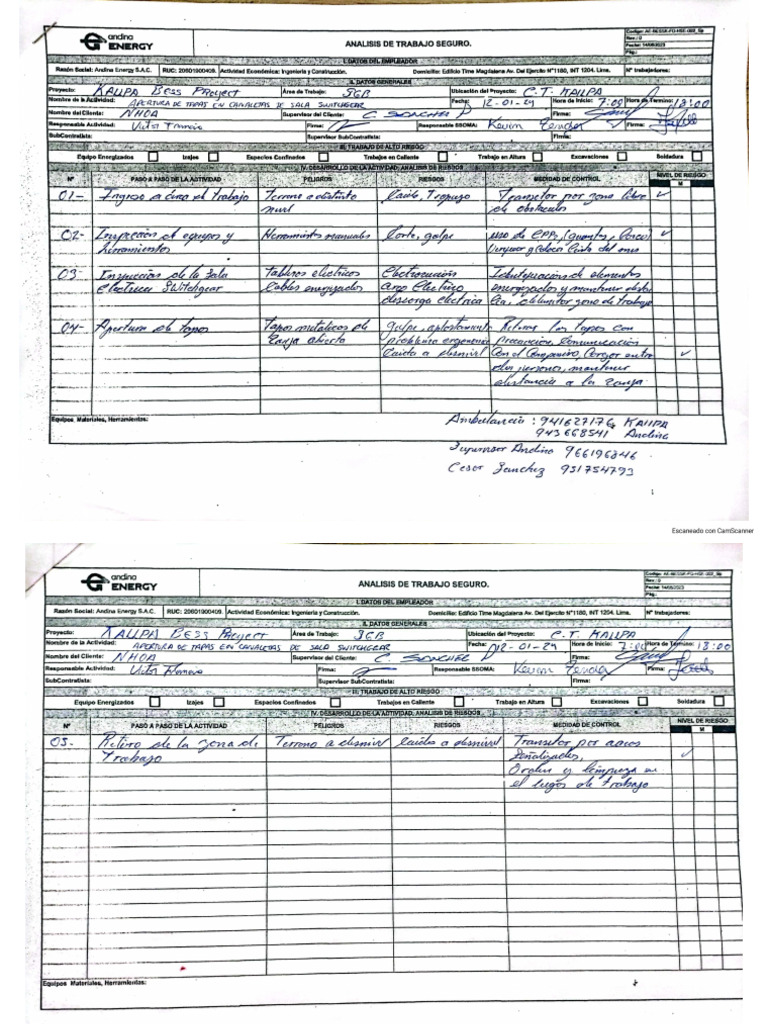 andina
ENERGY
ANALISIS DE TRABAJO SEGURO.
Código: AE-BESSK-FO-HSE-002_Sp
Rev / 0
Fecha: 14/08/2023
Pág.:
I. DATOS DEL EMPLEADOR
Razón Social: Andina Energy S.A.C. RUC: 20601900409. Actividad Económica: Ingeniería y Construcción. Domicilio: Edificio Time Magdalena Av. Del Ejercito N°1180, INT 1204. Lima. N° trabajadores:
II. DATOS GENERALES
Proyecto: KALLPA Bess PRoyect Área de Trabajo: SGB Ubicación del Proyecto: C.T. KALLPA
Nombre de la Actividad: APERTURA DE TAPAS EN CANALETAS DE SALA SWITCHGEAR Fecha: 12-01-24 Hora de Inicio: 7:00 Hora de Término: 18:00
Nombre del Cliente: NHOA Supervisor del Cliente: C SANCHEZ P Firma:
Responsable Actividad: Victor Firma: Responsable SSOMA: Kevin Firma:
SubContratista: Supervisor SubContratista: Firma:
III. TRABAJO DE ALTO RIESGO
Equipo Energizados Izajes Espacios Confinados Trabajos en Caliente Trabajo en Altura Excavaciones Soldadura
IV. DESARROLLO DE LA ACTIVIDAD, ANALISIS DE RIESGOS
N° PASO A PASO DE LA ACTIVIDAD PELIGROS RIESGOS MEDIDAD DE CONTROL NIVEL DE RIESGO
M
01- Ingreso a área de trabajo Terreno a distinto Caída, Tropiezo Transitar por zona libre
nivel de obstáculos
02- Inspección de equipos y Herramientas manuales Corte, golpe uso de EPPs (guantes, casco)
herramientas
03- Inspección de la Sala Tableros electricos Electrocución Identificación de elementos
Electrica Switchgear Cables energizados arco Electrico energizados y mantener
descarga electrica delimitar zona de trabajo
04- Apertura de tapas Tapas metalicas de golpe, aplastamiento Retirar las tapas con
Zanja abierta problema ergonomico precaucion, comunicacion
caida a desnivel con el compañero, cargar entre
dos personas, mantener
distancia a la zanja
Equipos Materiales, Herramientas:
Ambulancia: 941627176 KALLPA
943668541 Andina
Supervisor Andina 966196846
Cesar Sanchez 931754793
Escaneado con CamScanner
andina
ENERGY
ANALISIS DE TRABAJO SEGURO.
Código: AE-BESSK-FO-HSE-002_Sp
Rev / 0
Fecha: 14/08/2023
Pág.:
I. DATOS DEL EMPLEADOR
Razón Social: Andina Energy S.A.C. RUC: 20601900409. Actividad Económica: Ingeniería y Construcción. Domicilio: Edificio Time Magdalena Av. Del Ejercito N°1180, INT 1204. Lima. N° trabajadores:
II. DATOS GENERALES
Proyecto: KALLPA BESS Proyect Área de Trabajo: SGB Ubicación del Proyecto: C.T. KALLPA
Nombre de la Actividad: APERTURA DE TAPAS EN CANALETAS DE SALA SWITCHGEAR Fecha: 12-01-24 Hora de Inicio: 7:00 Hora de Término: 18:00
Nombre del Cliente: NHOA Supervisor del Cliente: C SANCHEZ P Firma:
Responsable Actividad: Victor Firma: Responsable SSOMA: Kevin Firma:
SubContratista: Supervisor SubContratista: Firma:
III. TRABAJO DE ALTO RIESGO
Equipo Energizados Izajes Espacios Confinados Trabajos en Caliente Trabajo en Altura Excavaciones Soldadura
IV. DESARROLLO DE LA ACTIVIDAD, ANALISIS DE RIESGOS
N° PASO A PASO DE LA ACTIVIDAD PELIGROS RIESGOS MEDIDAD DE CONTROL NIVEL DE RIESGO
M
05- Retiro de la zona de Terreno a desnivel caida a desnivel Transitar por areas
Trabajo Señalizadas,
Orden y limpieza en
el lugar de trabajo
Equipos Materiales, Herramientas: